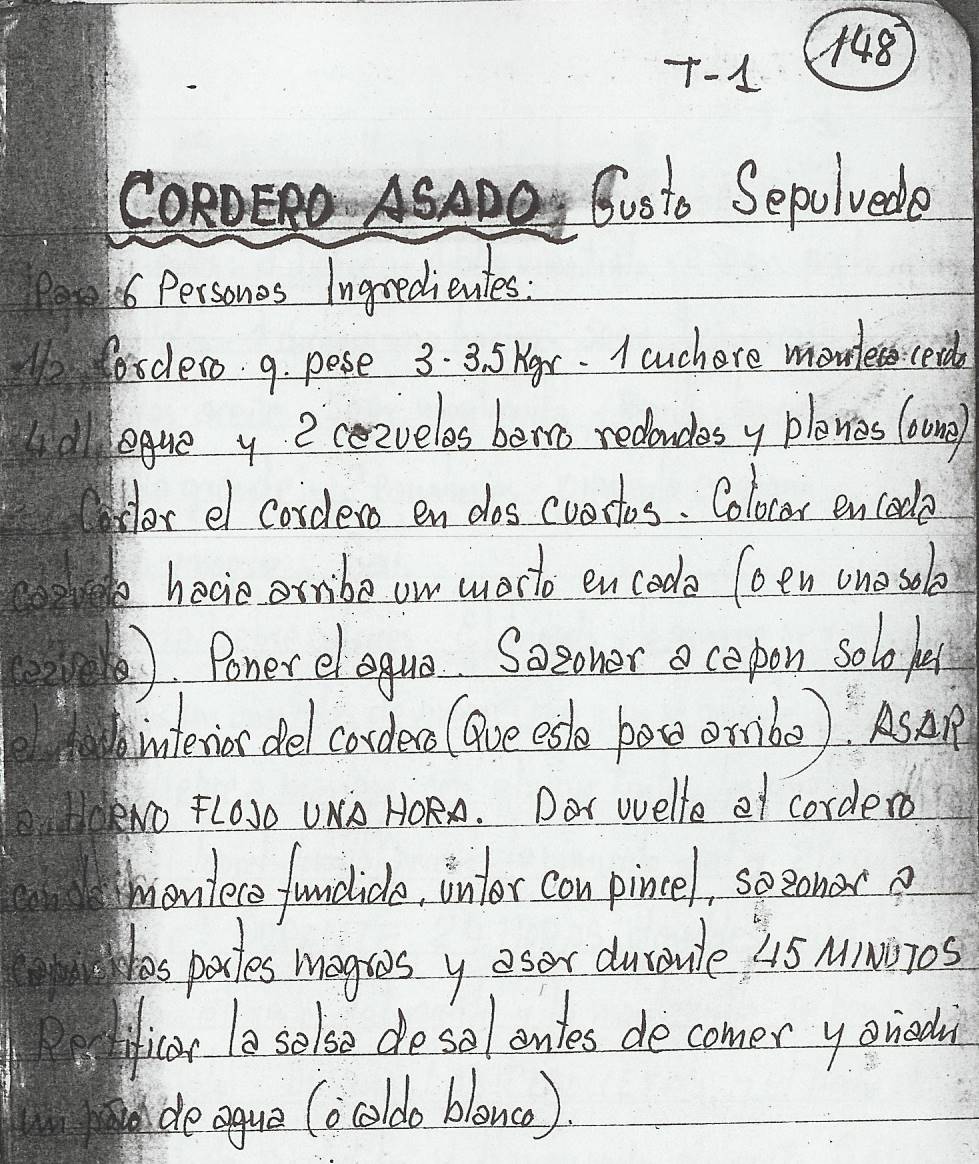 T-1 148
CORDERO ASADO. Gusto Sepulveda
Para 6 Personas Ingredientes:
1/2 Cordero q. pese 3-3,5 Kgr - 1 cuchara manteca cerdo
4 dl agua y 2 cazuelas barro redondas y planas (o una)
Cortar el cordero en dos cuartos. Colocar en cada
cazuela hacia arriba un cuarto en cada (o en una sola
cazuela). Poner el agua. Sazonar a capon solo por
el interior del cordero (Que esta para arriba). ASAR
a HORNO FLOJO UNA HORA. Dar vuelta al cordero
con la manteca fundida, untar con pincel, sazonar a
capon las partes magras y asar durante 45 MINUTOS
Rectificar la salsa de sal antes de comer y añadir
un poco de agua (o caldo blanco).